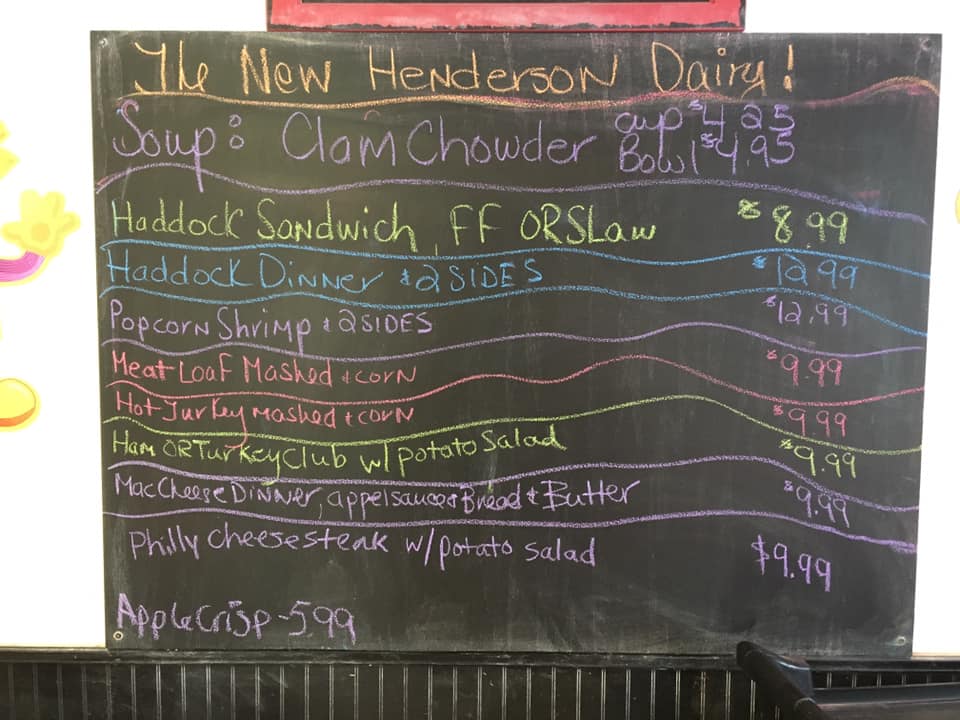 The New Henderson Dairy!
Soup: Clam Chowder cup $4.25
Bowl $4.95
Haddock Sandwich, FF OR SLaw $8.99
Haddock Dinner & 2 SIDES $12.99
Popcorn Shrimp & 2 SIDES $12.99
Meat Loaf Mashed & corn $9.99
Hot Turkey mashed & corn $9.99
Ham OR Turkey Club w/ potato Salad $9.99
Mac Cheese Dinner, appelsauce & Bread & Butter $9.99
Philly cheesesteak w/ potato salad $9.99
Apple Crisp - 5.99